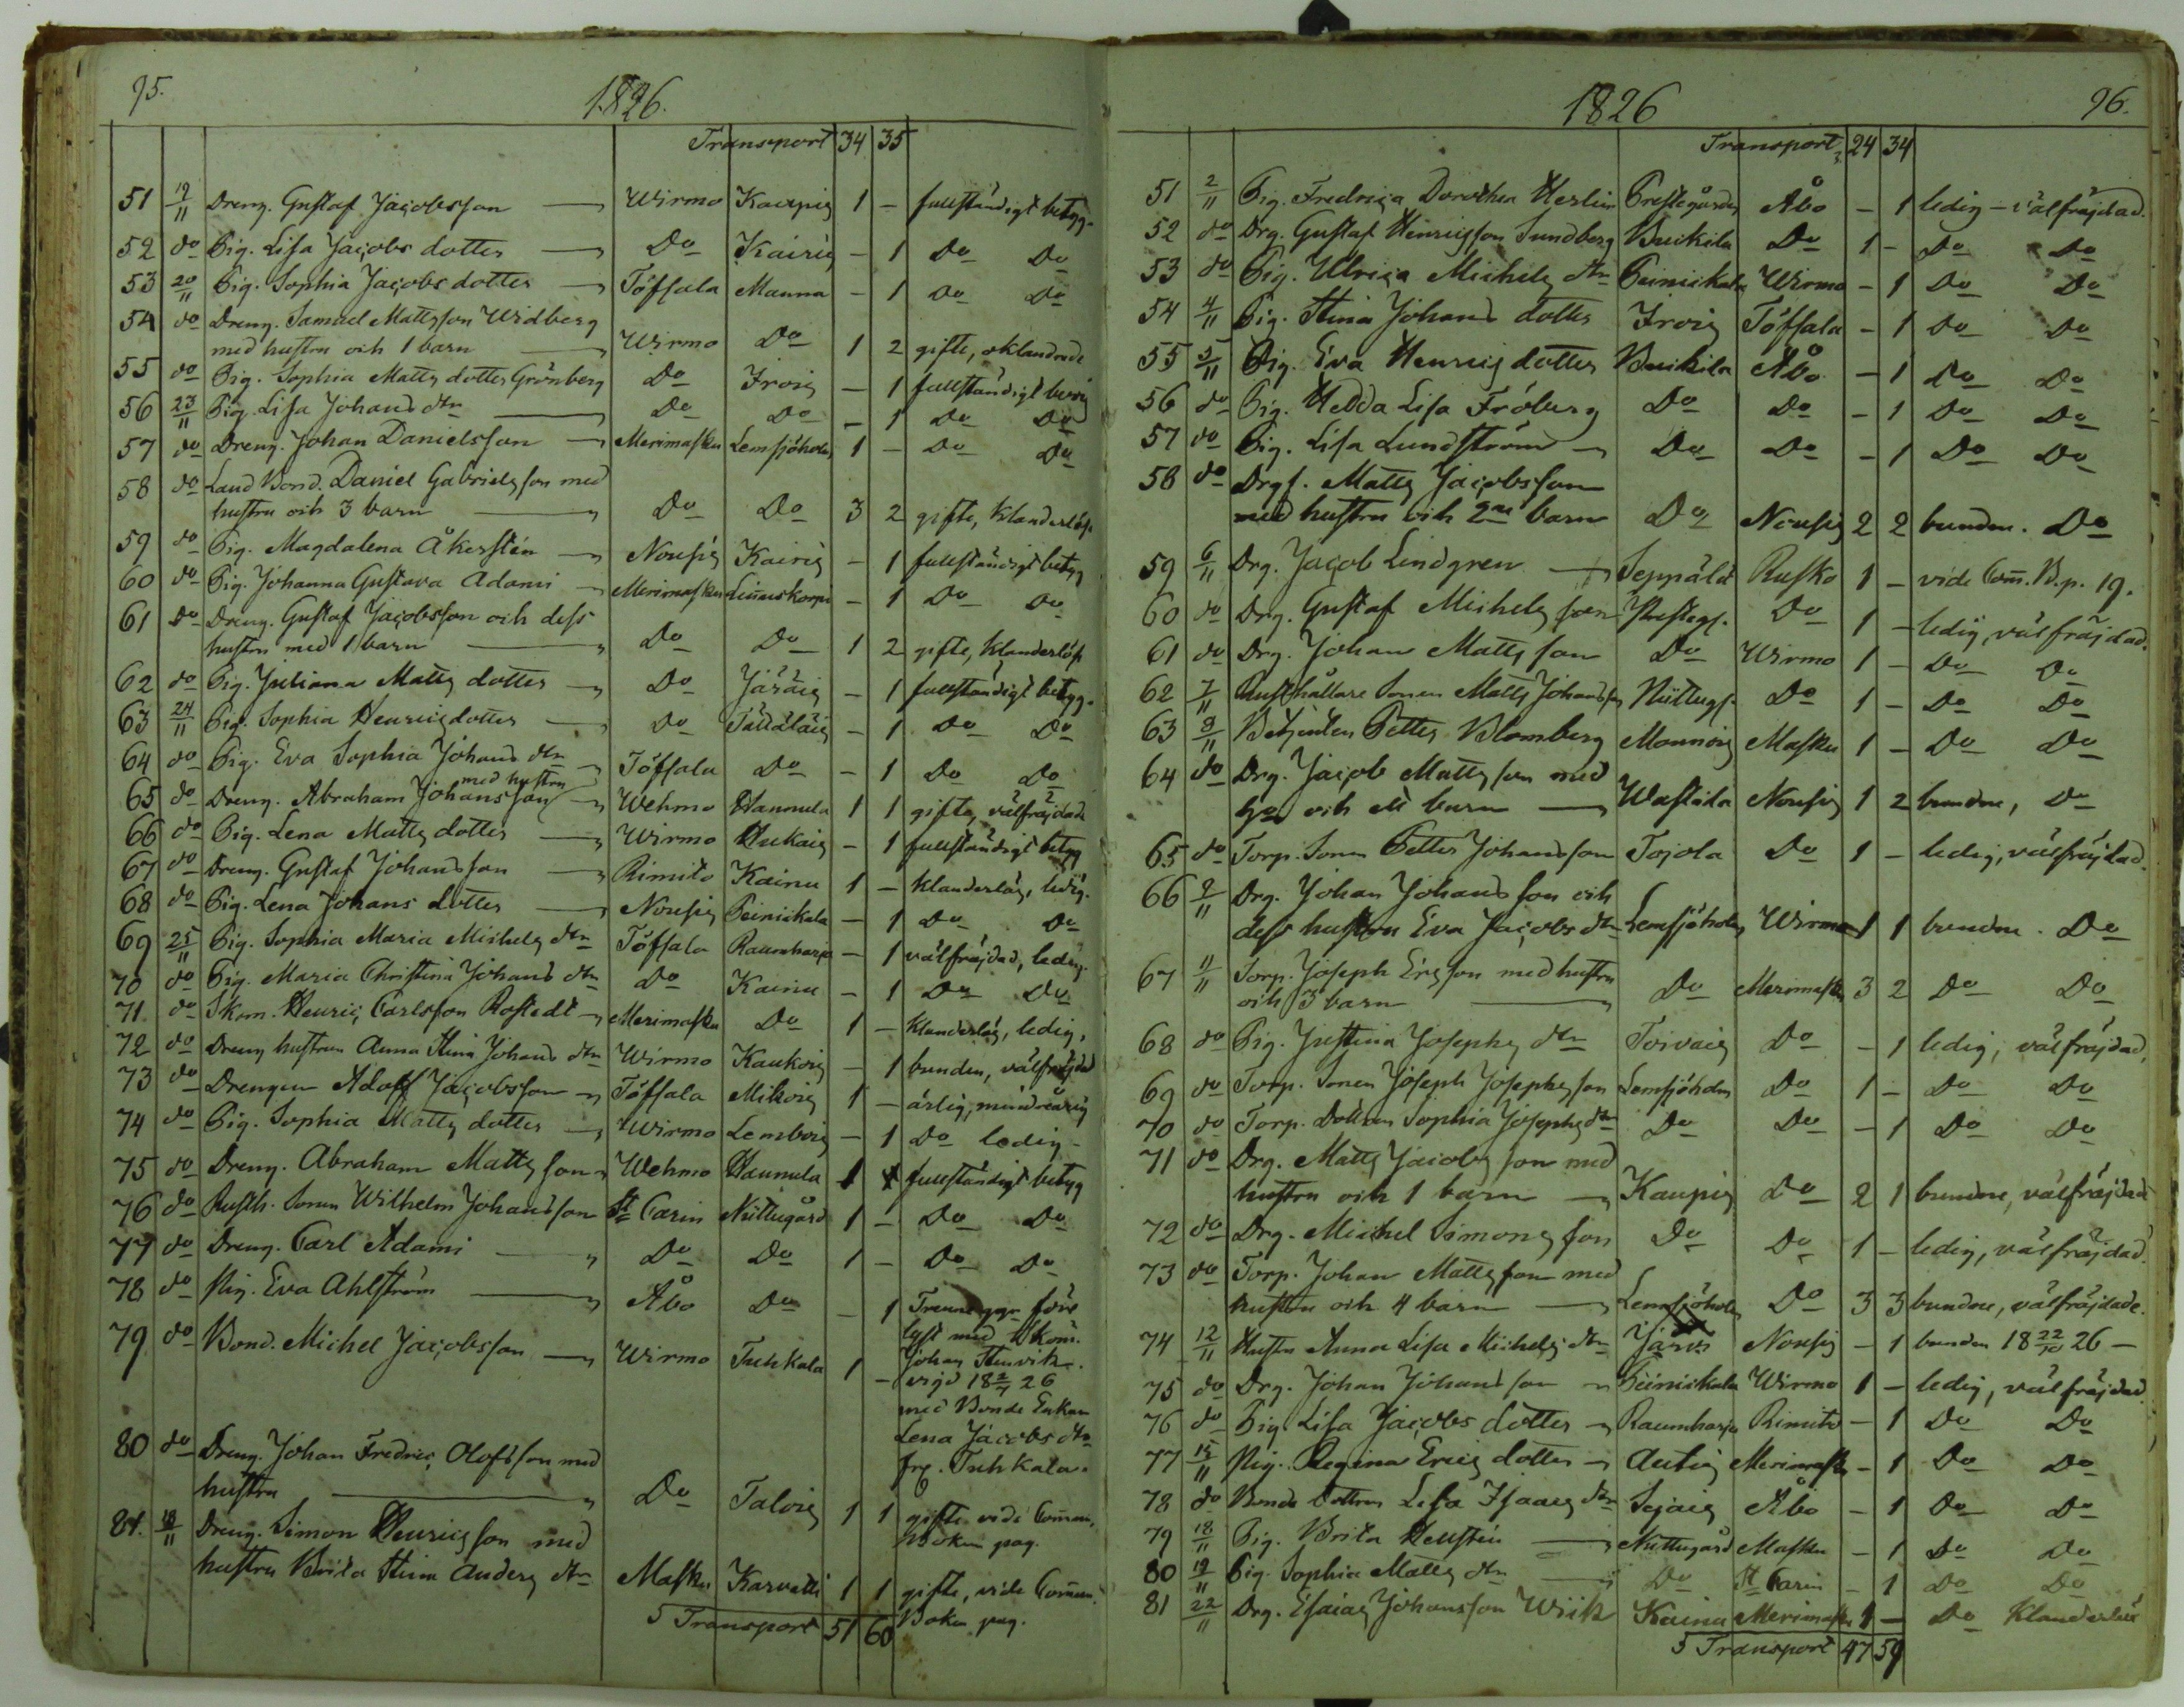 95.
1826.
Transport 34 35
51 19/11 Dreng. Gustaf Jacobsson Wirmo Kaupis 1 - fullständigt betyg.
52 do Pig. Lisa Jacobs dotter Do Kairis - 1 Do Do
53 20/11 Pig. Sophia Jacobs dotter Töfsala Manna - 1 Do Do
54 do Dreng. Samuel Mattsson Widberg
med hustru och 1 barn Wirmo Do 1 2 gifte, oklandrade
55 do Pig. Sophia Matts dotter Grönberg Do Frois - 1 fullständigt
56 23/11 Pig. Lisa Johans dtr Do Do - 1 Do Do
57 do Dreng. Johan Danielsson Merimasku Lemsjöholm 1 - Do Do
58 do Land Bond. Daniel Gabrielsson med
hustru och 3 barn Do Do 3 2 gifte, klanderlös
59 do Pig. Magdalena Åkerstén Nousis Kairis - 1 fullständigt betyg
60 do Pig. Johanna Gustava Adami Merimasku - 1 Do Do
61 do Dreng. Gustaf Jacobsson och dess
hustru med 1 barn Do Do 1 2 gifte, klanderlös
62 do Pig. Juliana Matts dotter Do Järäis - 1 fullständigt betyg.
63 24/11 Pig. Sophia Henrics dotter Do - 1 Do Do
64 do Pig. Eva Sophia Johans dtr Töfsala Do - 1 Do Do
65 do Dreng. Abraham Johansson med hustru Wehmo Hannula 1 1 gifte, välfräjdade
66 do Pig. Lena Matts dotter Wirmo Hukais - 1 fullständigt betyg
67 do Dreng. Gustaf Johansson Rimito Kainu 1 - klanderlös, ledig.
68 do Pig. Lena Johans dotter Nousis Peiniskala - 1 Do Do
69 25/11 Pig. Sophia Maria Michels dtr Töfsala Raumharja - 1 välfräjdad, ledig.
70 do Pig. Maria Christina Johans dtr Do Kainu - 1 Do Do
71 do Skom. Henric Carlsson Rostedt Merimasku Do 1 - klanderlös, ledig,
72 do Dreng hustrun Anna Stina Johans dtr Wirmo Kaukois - 1 bunden, välfräjdad
73 do Drengen Adolf Jacobsson Töfsala Mikois 1 - ärlig, mindreårig
74 do Pig. Sophia Matts dotter Wirmo Lembois - 1 Do ledig -
75 do Dreng. Abraham Mattsson Wehmo Hannula 1 fullständigt betyg
76 do Rusth. Sonen Wilhelm Johansson St Carin Nuttugård 1 - Do Do
77 do Dreng. Carl Adami Do Do 1 - Do Do
78 do Pig. Eva Ahlström Åbo Do - 1 Trenne ggr före
lyst med Skom.
Johan Stenvik.
79 do Bond. Michel Jacobsson Wirmo Tuhkala 1 - vigd 18 2/7 26
med Bonde Enkan
Lena Jacobs dtr
fr. Tuhkala.
80 do Dreng. Johan Fredric Olofsson med
hustru Do Talois 1 1 gifte vide Commun.
Boken pag.
81. 18/11 Dreng. Simon Henricsson med
hustru Brita Stina Anders dtr Masku Karvatti 1 1 gifte, vide Commun.
Boken pag.
5 Transport 51 60
1826
96.
Transport 24 34
51 2/11 Pig. Fredrica Dorothea Herlin Prestegården Åbo - 1 ledig - välfräjdad.
52 do Drg. Gustaf Henricsson Sundberg Buikila Do 1 - Do Do
53 do Pig. Ulrica Michels dtr Peiniskala Wirmo - 1 Do Do
54 4/11 Pig. Stina Johans dotter Frois Töfsala - 1 Do Do
55 5/11 Pig. Eva Henrics dotter Buikila Åbo - 1 Do Do
56 do Pig. Hedda Lisa Fröberg Do Do - 1 Do Do
57 do Pig. Lisa Lundström Do Do - 1 Do Do
58 do Drgf. Matts Jacobsson
med hustru och 2ne barn Do Nousis 2 2 bunden. Do
59 6/11 Drg. Jacob Lindgren Seppälä Rusko 1 - vide Com. B. p. 19.
60 do Drg. Gustaf Michelsson Prestegl. Do 1 - ledig, välfräjdad.
61 do Drg. Johan Mattsson Do Wirmo 1 - Do Do
62 7/11 Rusthållare Sonen Matts Johansson Nuttugl. Do 1 - Do Do
63 8/11 Betjenten Petter Blomberg Monnois Masku 1 - Do Do
64 do Drg. Jacob Mattsson med
och ett barn Wastila Nousis 1 2 bundne, Do
65 do Torp. Sonen Petter Johansson Tojola Do 1 - ledig, välfräjdad.
66 9/11 Drg. Johan Johansson och
dess hustru Eva Jacobs dtr Lemsjöholm Wirmo 1 1 bundne. Do
67 11/11 Torp. Joseph Ericsson med hustru
och 3 barn Do Merimasku 3 2 Do Do
68 do Pig. Justina Josephs dtr Toivais Do - 1 ledig, välfräjdad,
69 do Torp. Sonen Joseph Josephsson Lemsjöholm Do 1 - Do Do
70 do Torp. Dottren Sophia Josephs dtr Do Do - 1 Do Do
71 do Drg. Matts Jacobsson med
hustru och 1 barn Kaupis Do 2 1 bundne, välfräjdade
72 do Drg. Michel Simonsson Do Do 1 - ledig, välfräjdad.
73 do Torp. Johan Mattsson med
hustru och 4 barn Lemsjöholm Do 3 3 bundne, välfräjdade.
74 12/11 Hustru Anna Lisa Michels dtr Järvis Nousis - 1 bunden 18 22/10 26 -
75 do Drg. Johan Johansson Peiniskala Wirmo 1 - ledig, välfräjdad
76 do Pig. Lisa Jacobs dotter Raumharja Rimito - 1 Do Do
77 15/11 Pig. Regina Erics dotter Autis Merimasku - 1 Do Do
78 do Bonde Dottren Lisa Isaacs dtr Sejais Åbo - 1 Do Do
79 18/11 Pig. Brita Hellstén Nuttugård Masku - 1 Do Do
80 19/11 Pig. Sophia Matts dtr Do St Carin - 1 Do Do
81 22/11 Drg. Esaias Johansson Wiik Kaina Merimasku 1 - Do Klanderlös
5 Transport 47 59